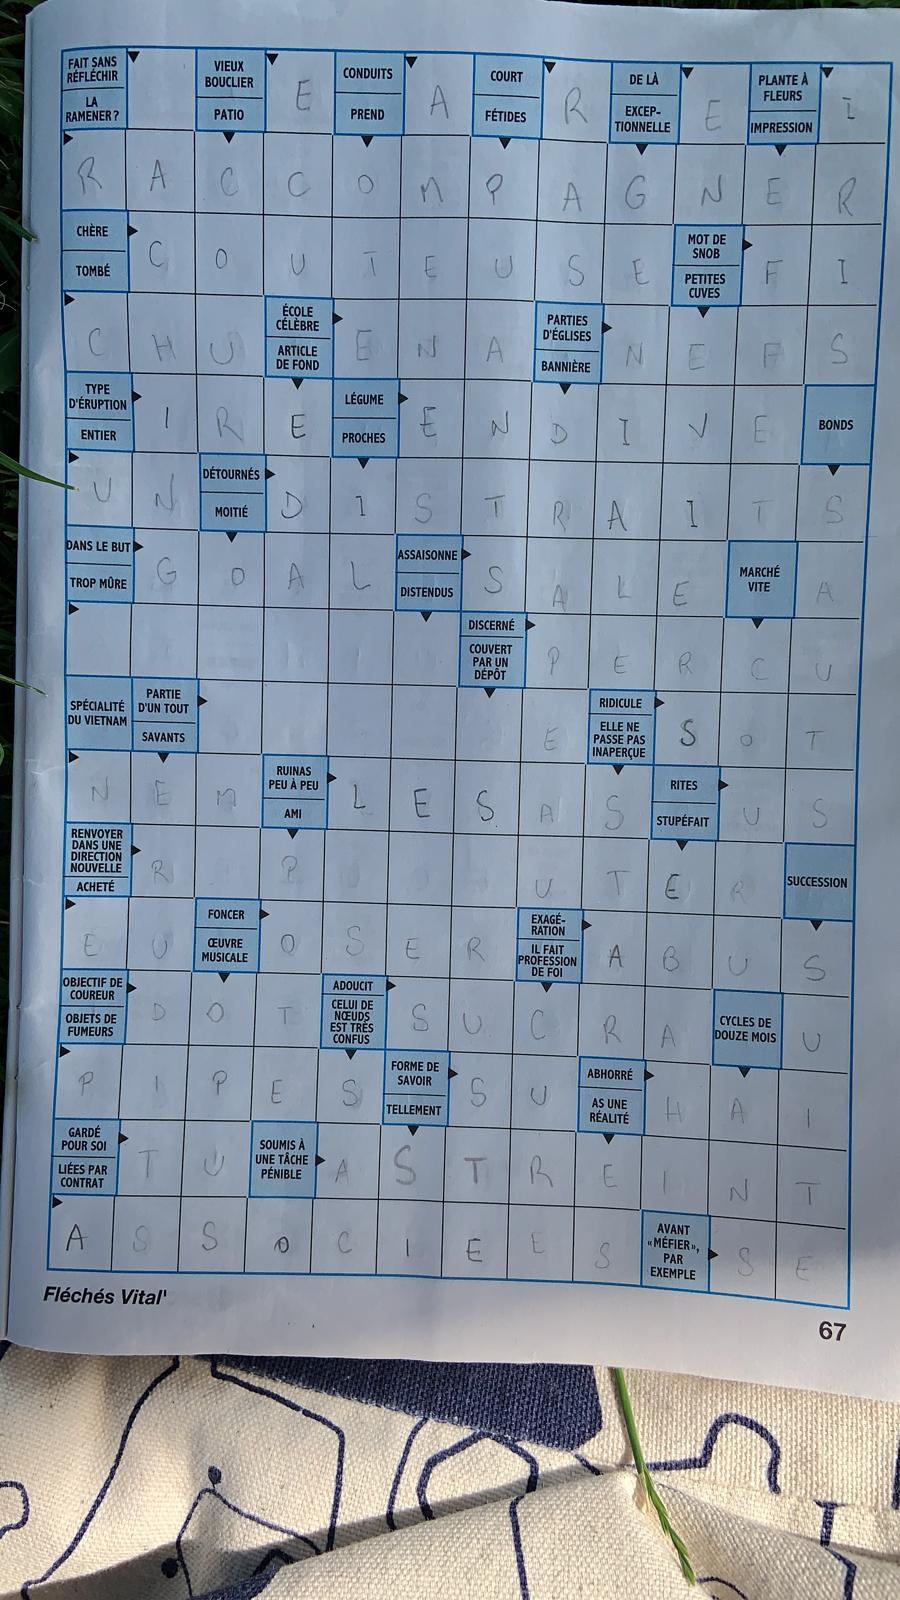 FAIT SANS RÉFLÉCHIR
LA RAMENER ?
VIEUX BOUCLIER
PATIO
E
CONDUITS
PREND
A
COURT
FÉTIDES
R
DE LÀ
EXCEP-
TIONNELLE
E
PLANTE À FLEURS
IMPRESSION
I
R A C C O M P A G N E R
CHÈRE
TOMBÉ
C O U T E U S E
MOT DE SNOB
PETITES CUVES
F I
C H U
ÉCOLE CÉLÈBRE
ARTICLE DE FOND
E N A
PARTIES D'ÉGLISES
BANNIÈRE
N E F S
TYPE D'ÉRUPTION
ENTIER
I R E
LÉGUME
PROCHES
E N D I V E
BONDS
U N
DÉTOURNÉS
MOITIÉ
D I S T R A I T S
DANS LE BUT
TROP MÛRE
G O A L
ASSAISONNE
DISTENDUS
S A L E
MARCHÉ VITE
A
DISCERNÉ
COUVERT PAR UN DÉPÔT
P E R C U
SPÉCIALITÉ DU VIETNAM
PARTIE D'UN TOUT
SAVANTS
E
RIDICULE
ELLE NE PASSE PAS INAPERÇUE
S O T
N E M
RUINAS PEU À PEU
AMI
L E S A S
RITES
STUPÉFAIT
U S
RENVOYER DANS UNE DIRECTION NOUVELLE
ACHETÉ
R P U T E R
SUCCESSION
E U
FONCER
ŒUVRE MUSICALE
O S E R
EXAGÉ-
RATION
IL FAIT PROFESSION DE FOI
A B U S
OBJECTIF DE COUREUR
OBJETS DE FUMEURS
D O T
ADOUCIT
CELUI DE NŒUDS EST TRÈS CONFUS
S U C R A
CYCLES DE DOUZE MOIS
U
P I P E S
FORME DE SAVOIR
TELLEMENT
S U
ABHORRÉ
AS UNE RÉALITÉ
H A I
GARDÉ POUR SOI
LIÉES PAR CONTRAT
T U
SOUMIS À UNE TÂCHE PÉNIBLE
A S T R E I N T
A S S O C I E E S
AVANT «MÉFIER», PAR EXEMPLE
S E
Fléchés Vital'
67